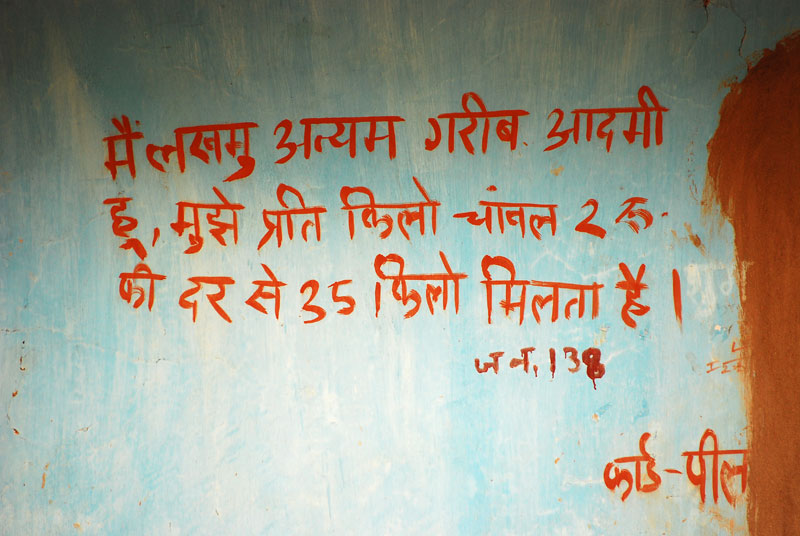 मैं लखमु अन्यम गरीब आदमी
हूं, मुझे प्रति किलो चांवल 2 रु.
की दर से 35 किलो मिलता है।
ज न. 138
कार्ड-पील